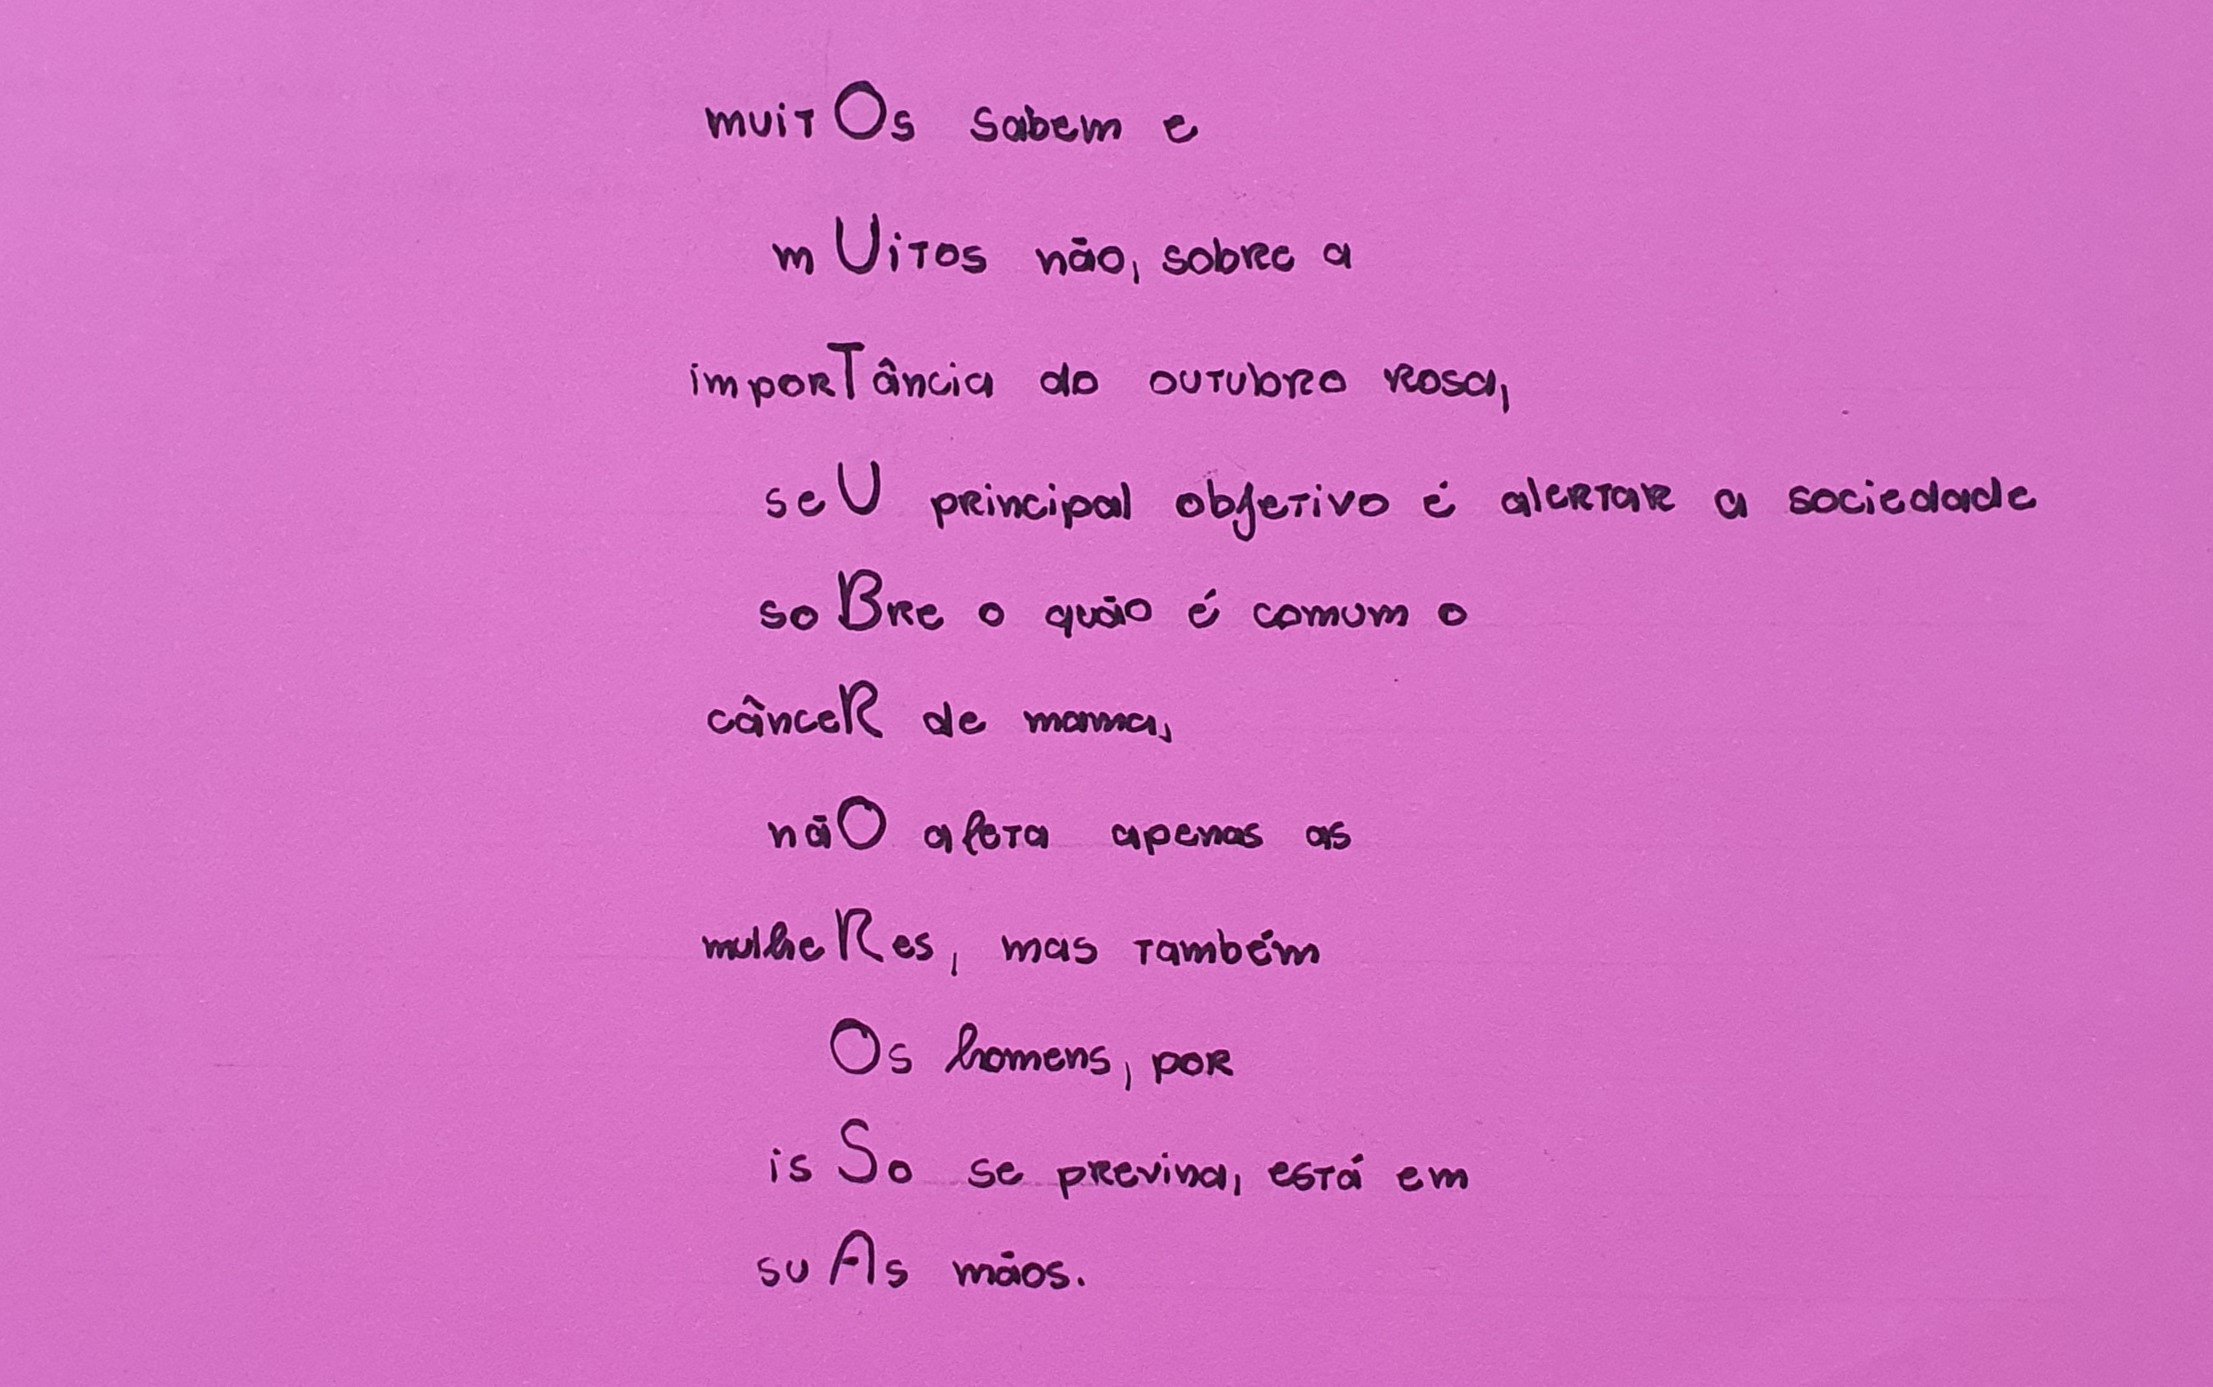 muitOs sabem e
mUitos não, sobre a
imporTância do outubro rosa,
seU principal objetivo é alertar a sociedade
soBre o quão é comum o
cânceR de mama,
nãO afeta apenas as
mulheRes, mas também
Os homens, por
isSo se previna, está em
suAs mãos.